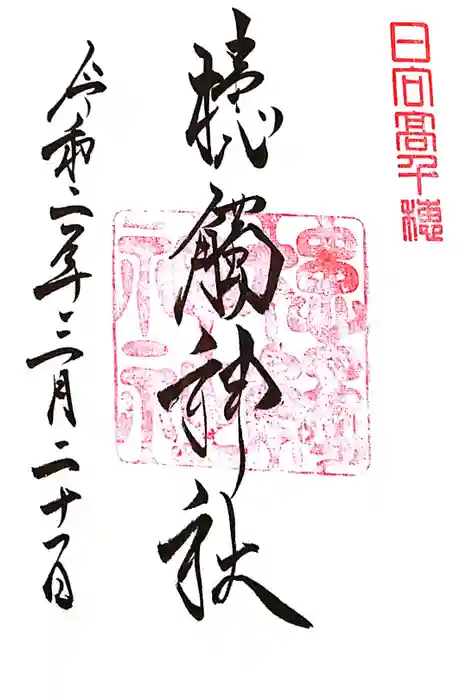 日向高千穂
槵觸神社
令和二年三月二十一日